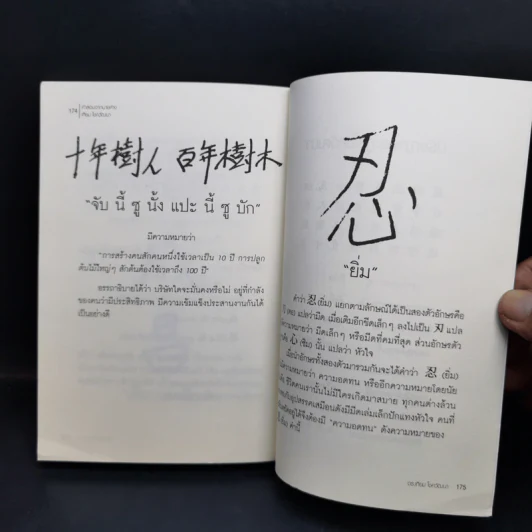 174
十年樹人 百年樹木
"จับ นี้ ซู นั้ง แปะ นี้ ซู บัก"
มีความหมายว่า
"การสร้างคนสักคนหนึ่งใช้เวลาเป็น 10 ปี การปลูก
ต้นไม้ใหญ่ๆ สักต้นต้องใช้เวลาถึง 100 ปี"
อรรถาธิบายได้ว่า บริษัทใดจะมั่นคงหรือไม่ อยู่ที่กำลัง
ของคนว่ามีประสิทธิภาพ มีความเข้มแข็งประสานงานกันได้
เป็นอย่างดี
忍
"ยิ่ม"
คำว่า 忍 (ยิ่ม) แยกตามลักษณ์ได้เป็นสองตัวอักษรคือ
แปลว่ามีด เมื่อเติมอีกขีดเล็กๆ ลงไปเป็น 刃 แปล
ความหมายว่า มีดเล็กๆ หรือมีดที่คมที่สุด ส่วนอักษรตัว
心 (ซิม) นั้น แปลว่า หัวใจ
เมื่อนำอักษรทั้งสองตัวมารวมกันจะได้คำว่า 忍 (ยิ่ม)
มีความหมายว่า ความอดทน หรืออีกความหมายโดยนัย
คนเรานั้นไม่มีใครเกิดมาสบาย ทุกคนต่างล้วน
อุปสรรคเสมือนดังมีมีดเล่มเล็กปักแทงหัวใจ คนที่
จึงต้องมี "ความอดทน" ดังความหมายของ
คำนี้
175